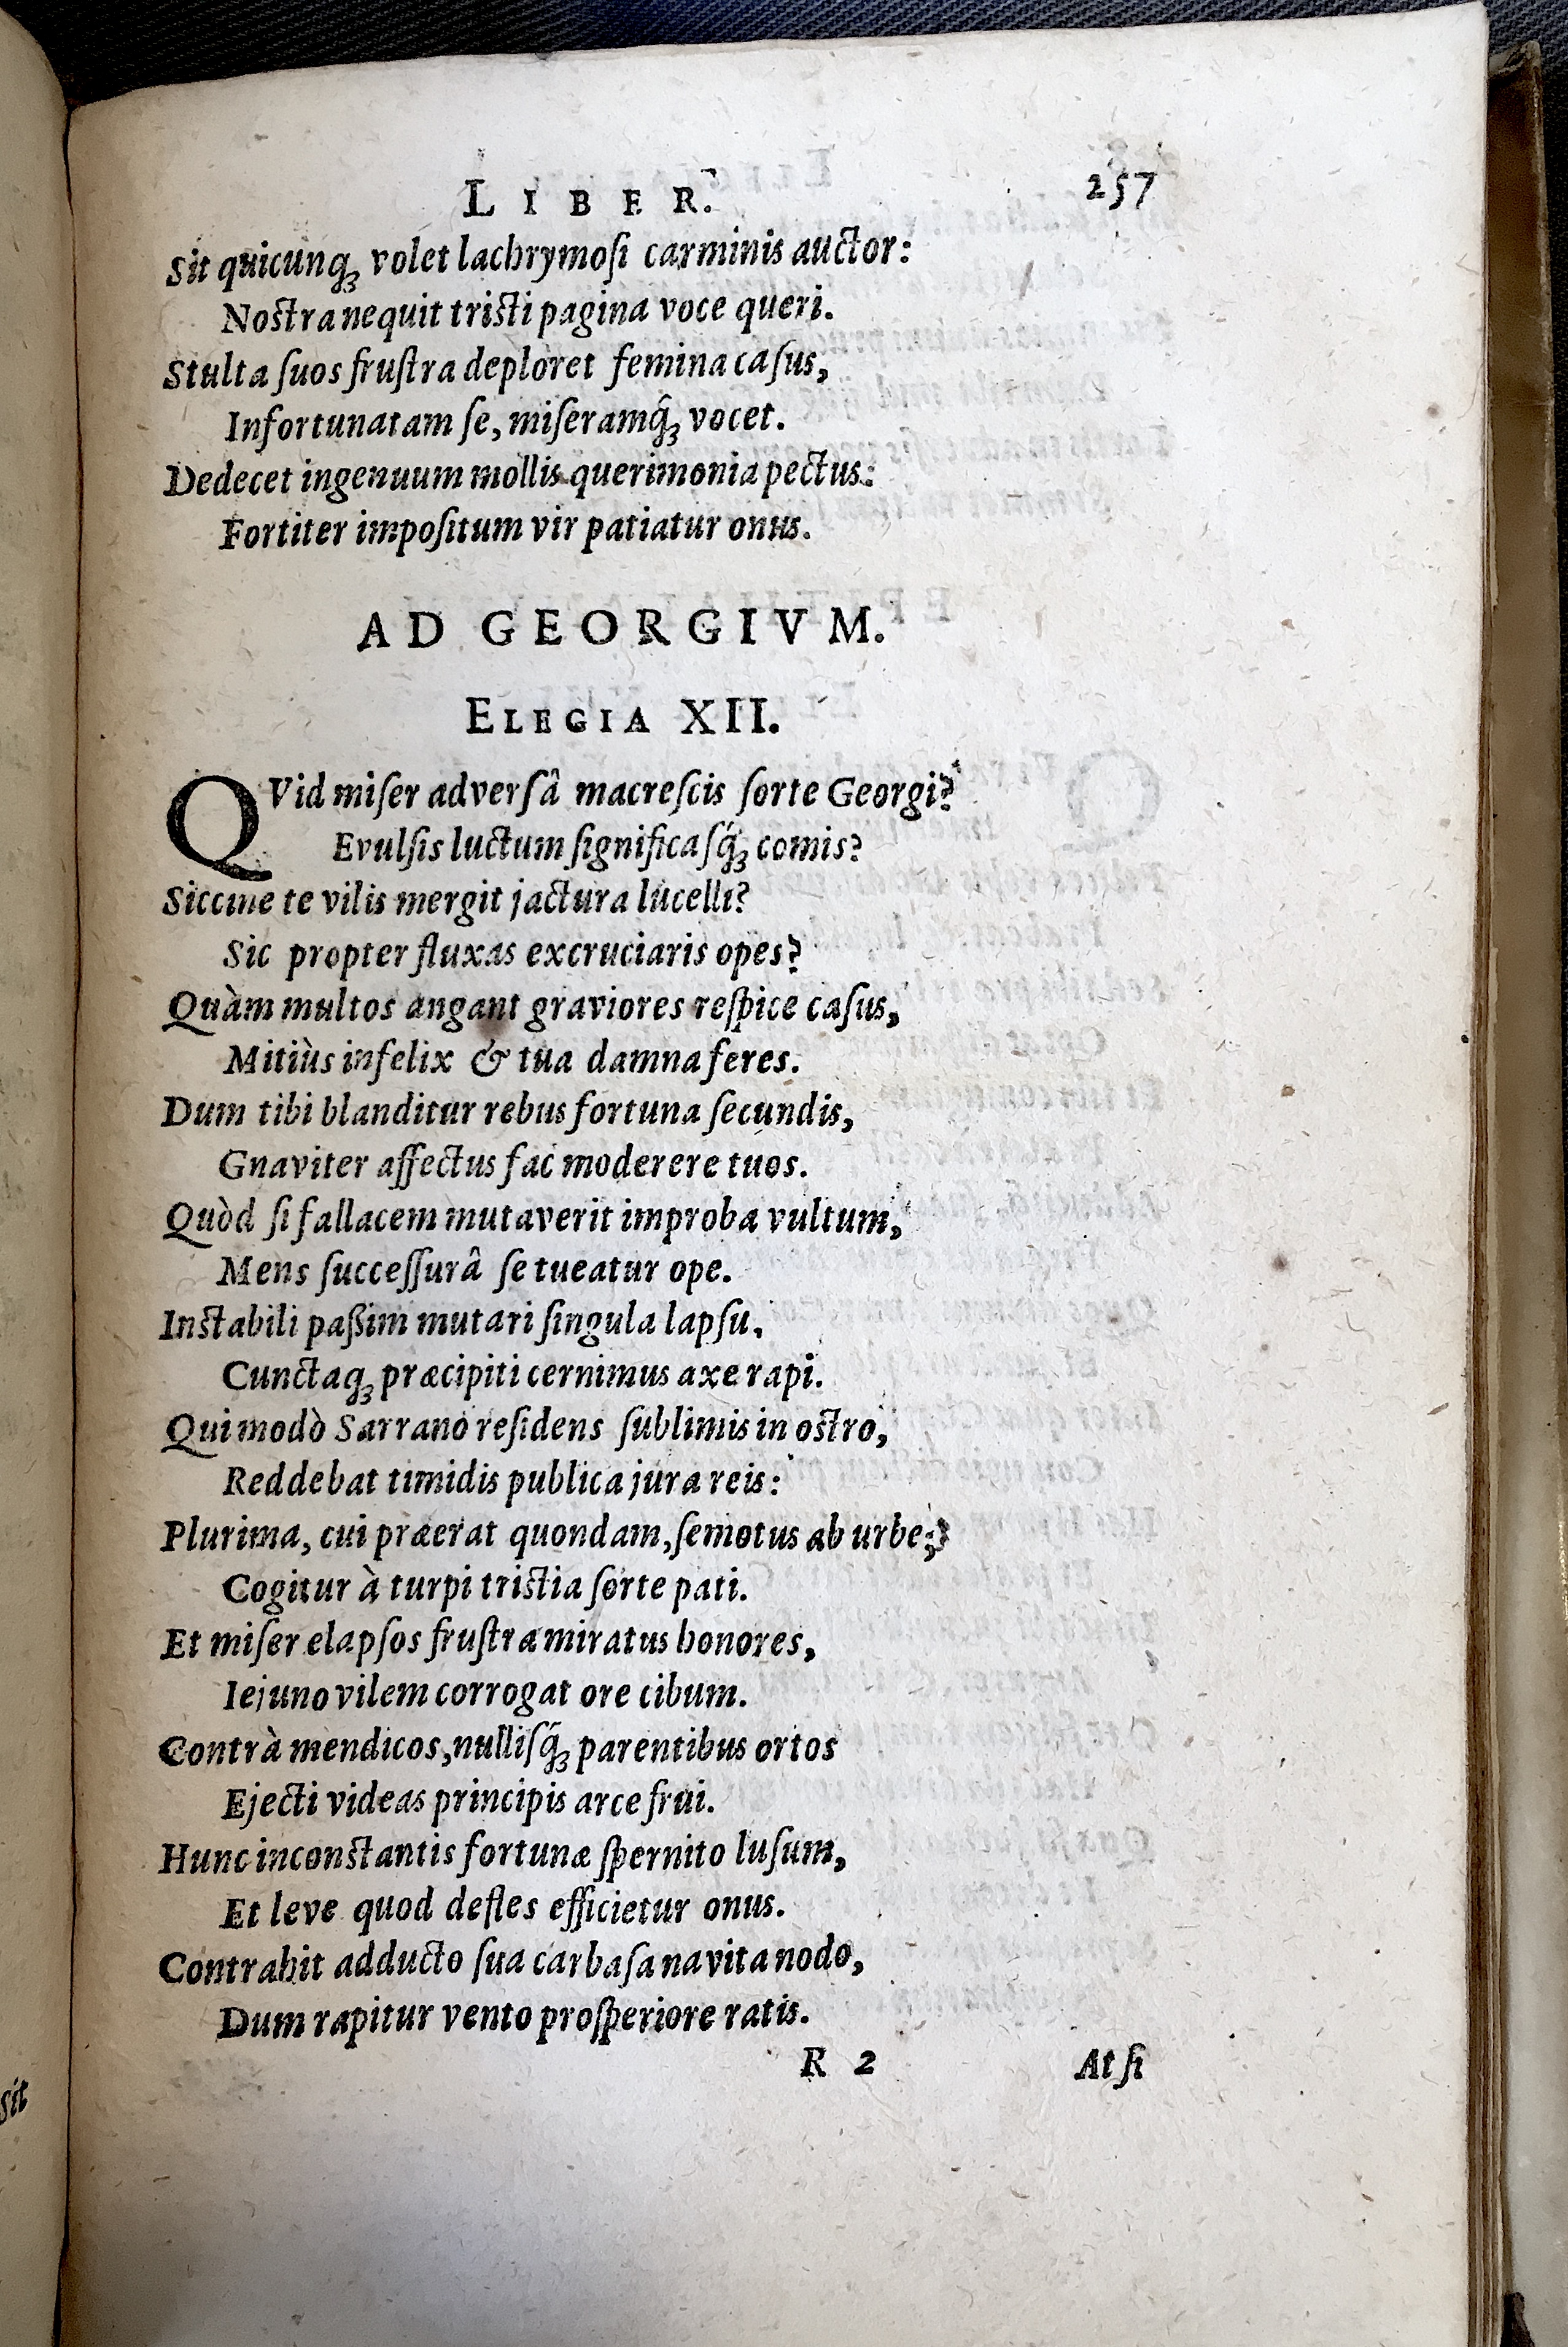 LIBER. 257
Sit quicunqꝫ volet lachrymoſi carminis auctor:
Noſtra nequit triſti pagina voce queri.
Stulta ſuos fruſtra deploret femina caſus,
Infortunatam ſe, miſeramq́ꝫ vocet.
Dedecet ingenuum mollis querimonia pectus:
Fortiter impoſitum vir patiatur onus.
AD GEORGIVM.
ELEGIA XII.
QVid miſer adverſâ macreſcis ſorte Georgi?
Evulſis luctum ſignificaſq́ꝫ comis?
Siccine te vilis mergit jactura lucelli?
Sic propter fluxas excruciaris opes?
Quàm multos angant graviores reſpice caſus,
Mitiùs infelix & tua damna feres.
Dum tibi blanditur rebus fortuna ſecundis,
Gnaviter affectus fac moderere tuos.
Quòd ſi fallacem mutaverit improba vultum,
Mens ſucceſſurâ ſe tueatur ope.
Inſtabili paßim mutari ſingula lapſu,
Cunctaqꝫ præcipiti cernimus axe rapi.
Qui modò Sarrano reſidens ſublimis in oſtro,
Reddebat timidis publica jura reis:
Plurima, cui præerat quondam, ſemotus ab urbe;
Cogitur à turpi triſtia ſorte pati.
Et miſer elapſos fruſtra miratus honores,
Iejuno vilem corrogat ore cibum.
Contrà mendicos, nulliſq́ꝫ parentibus ortos
Ejecti videas principis arce frui.
Hunc inconſtantis fortunæ ſpernito luſum,
Et leve quod defles efficietur onus.
Contrahit adducto ſua carbaſa navita nodo,
Dum rapitur vento proſperiore ratis.
R 2 At ſi
ſit